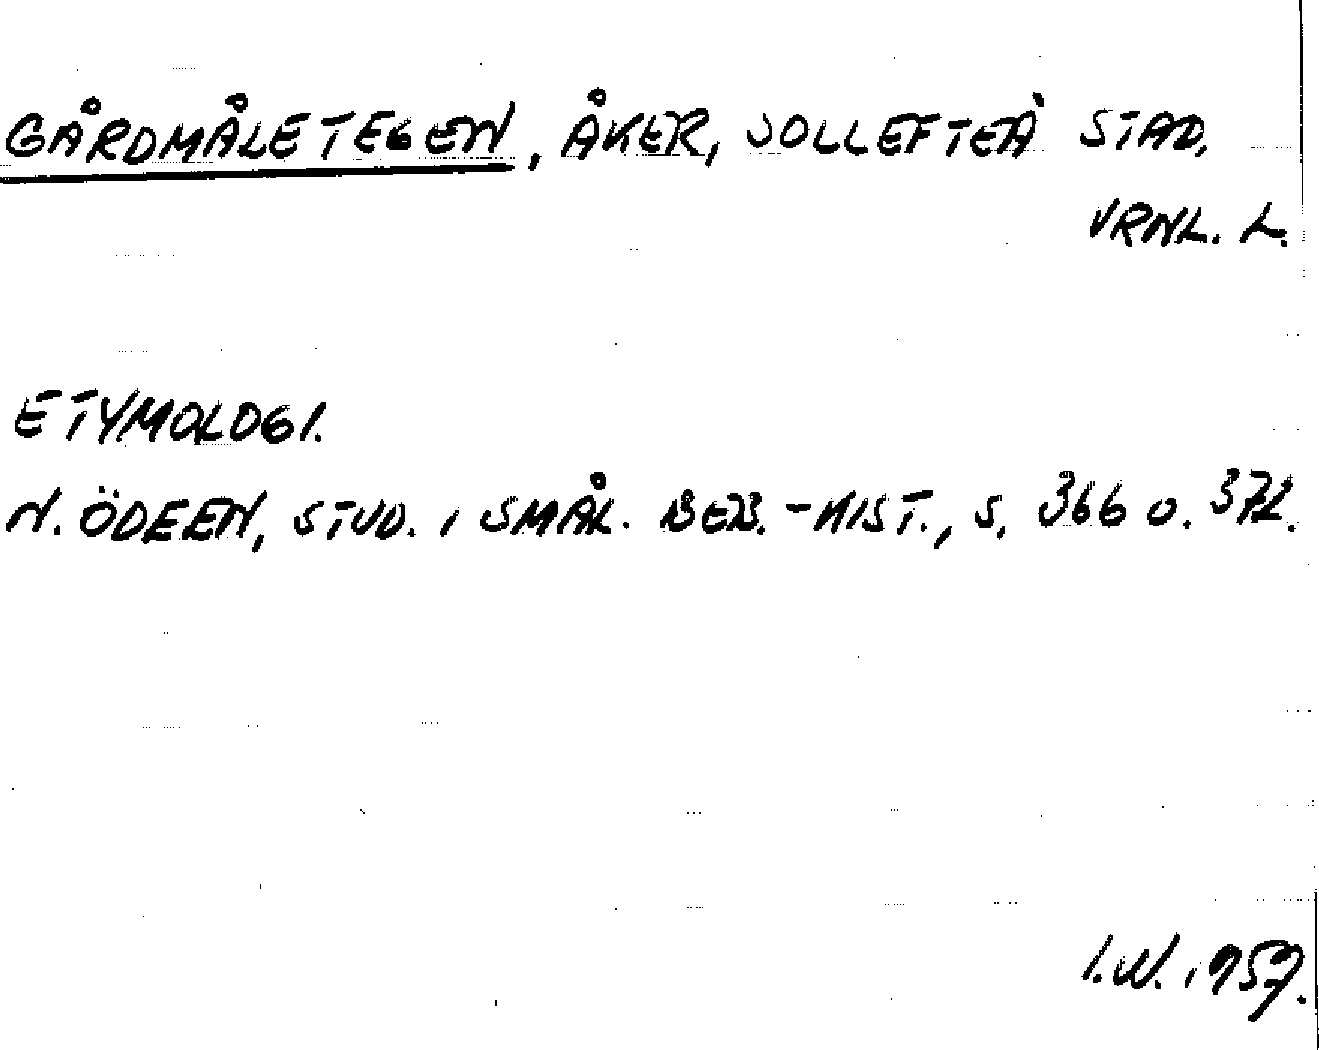 GÅRDMÅLETEGEN, ÅKER, SOLLEFTEÅ STAD,
VRNL. L.
ETYMOLOGI.
N. ÖDEEN, STUD. I SMÅL. BEB. -HIST., S. 366 O. 372.
I.N. 1959.